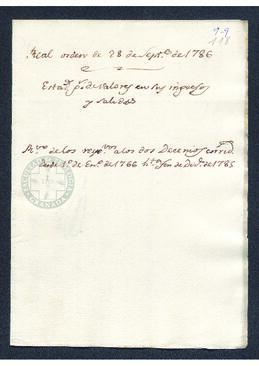 9-9
118
Real orden de 28 de Sept.e de 1786
Estad.s p.s de valores en sus ingresos
y salidas
R.n de los resp.vos a los dos Decenios corrid.
desde 1.o de En.o de 1766 h.ta fin de Dic.e de 1785
GRANADA